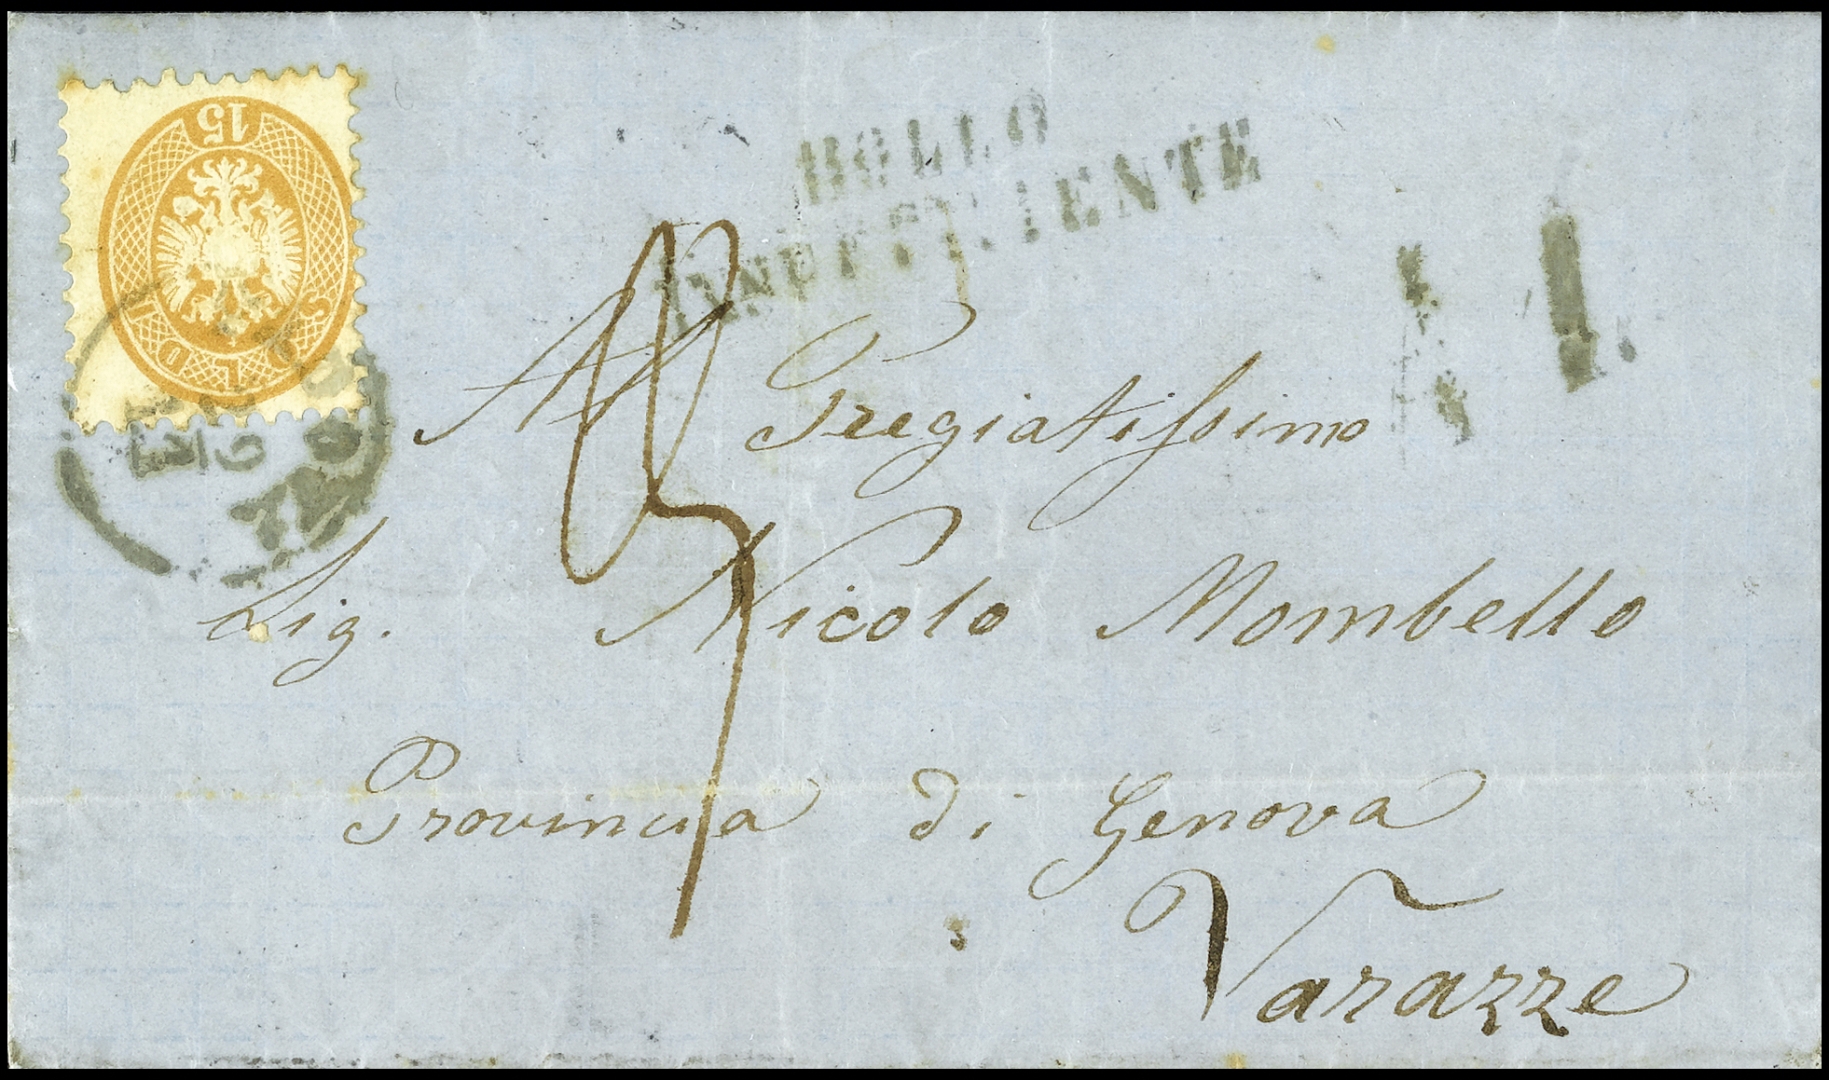 15
SOLDI
BOLLO
INSUFFICIENTE
Al Pregiatissimo
Sig. Nicolo Mombello
Provincia di Genova
Varazze